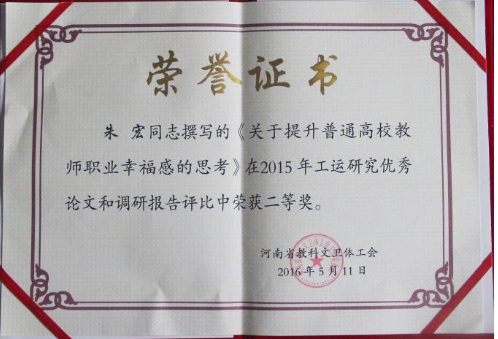 荣誉证书
朱 宏同志撰写的《关于提升普通高校教
师职业幸福感的思考》在2015年工运研究优秀
论文和调研报告评比中荣获二等奖。
河南省教科文卫体工会
2016年5月11日